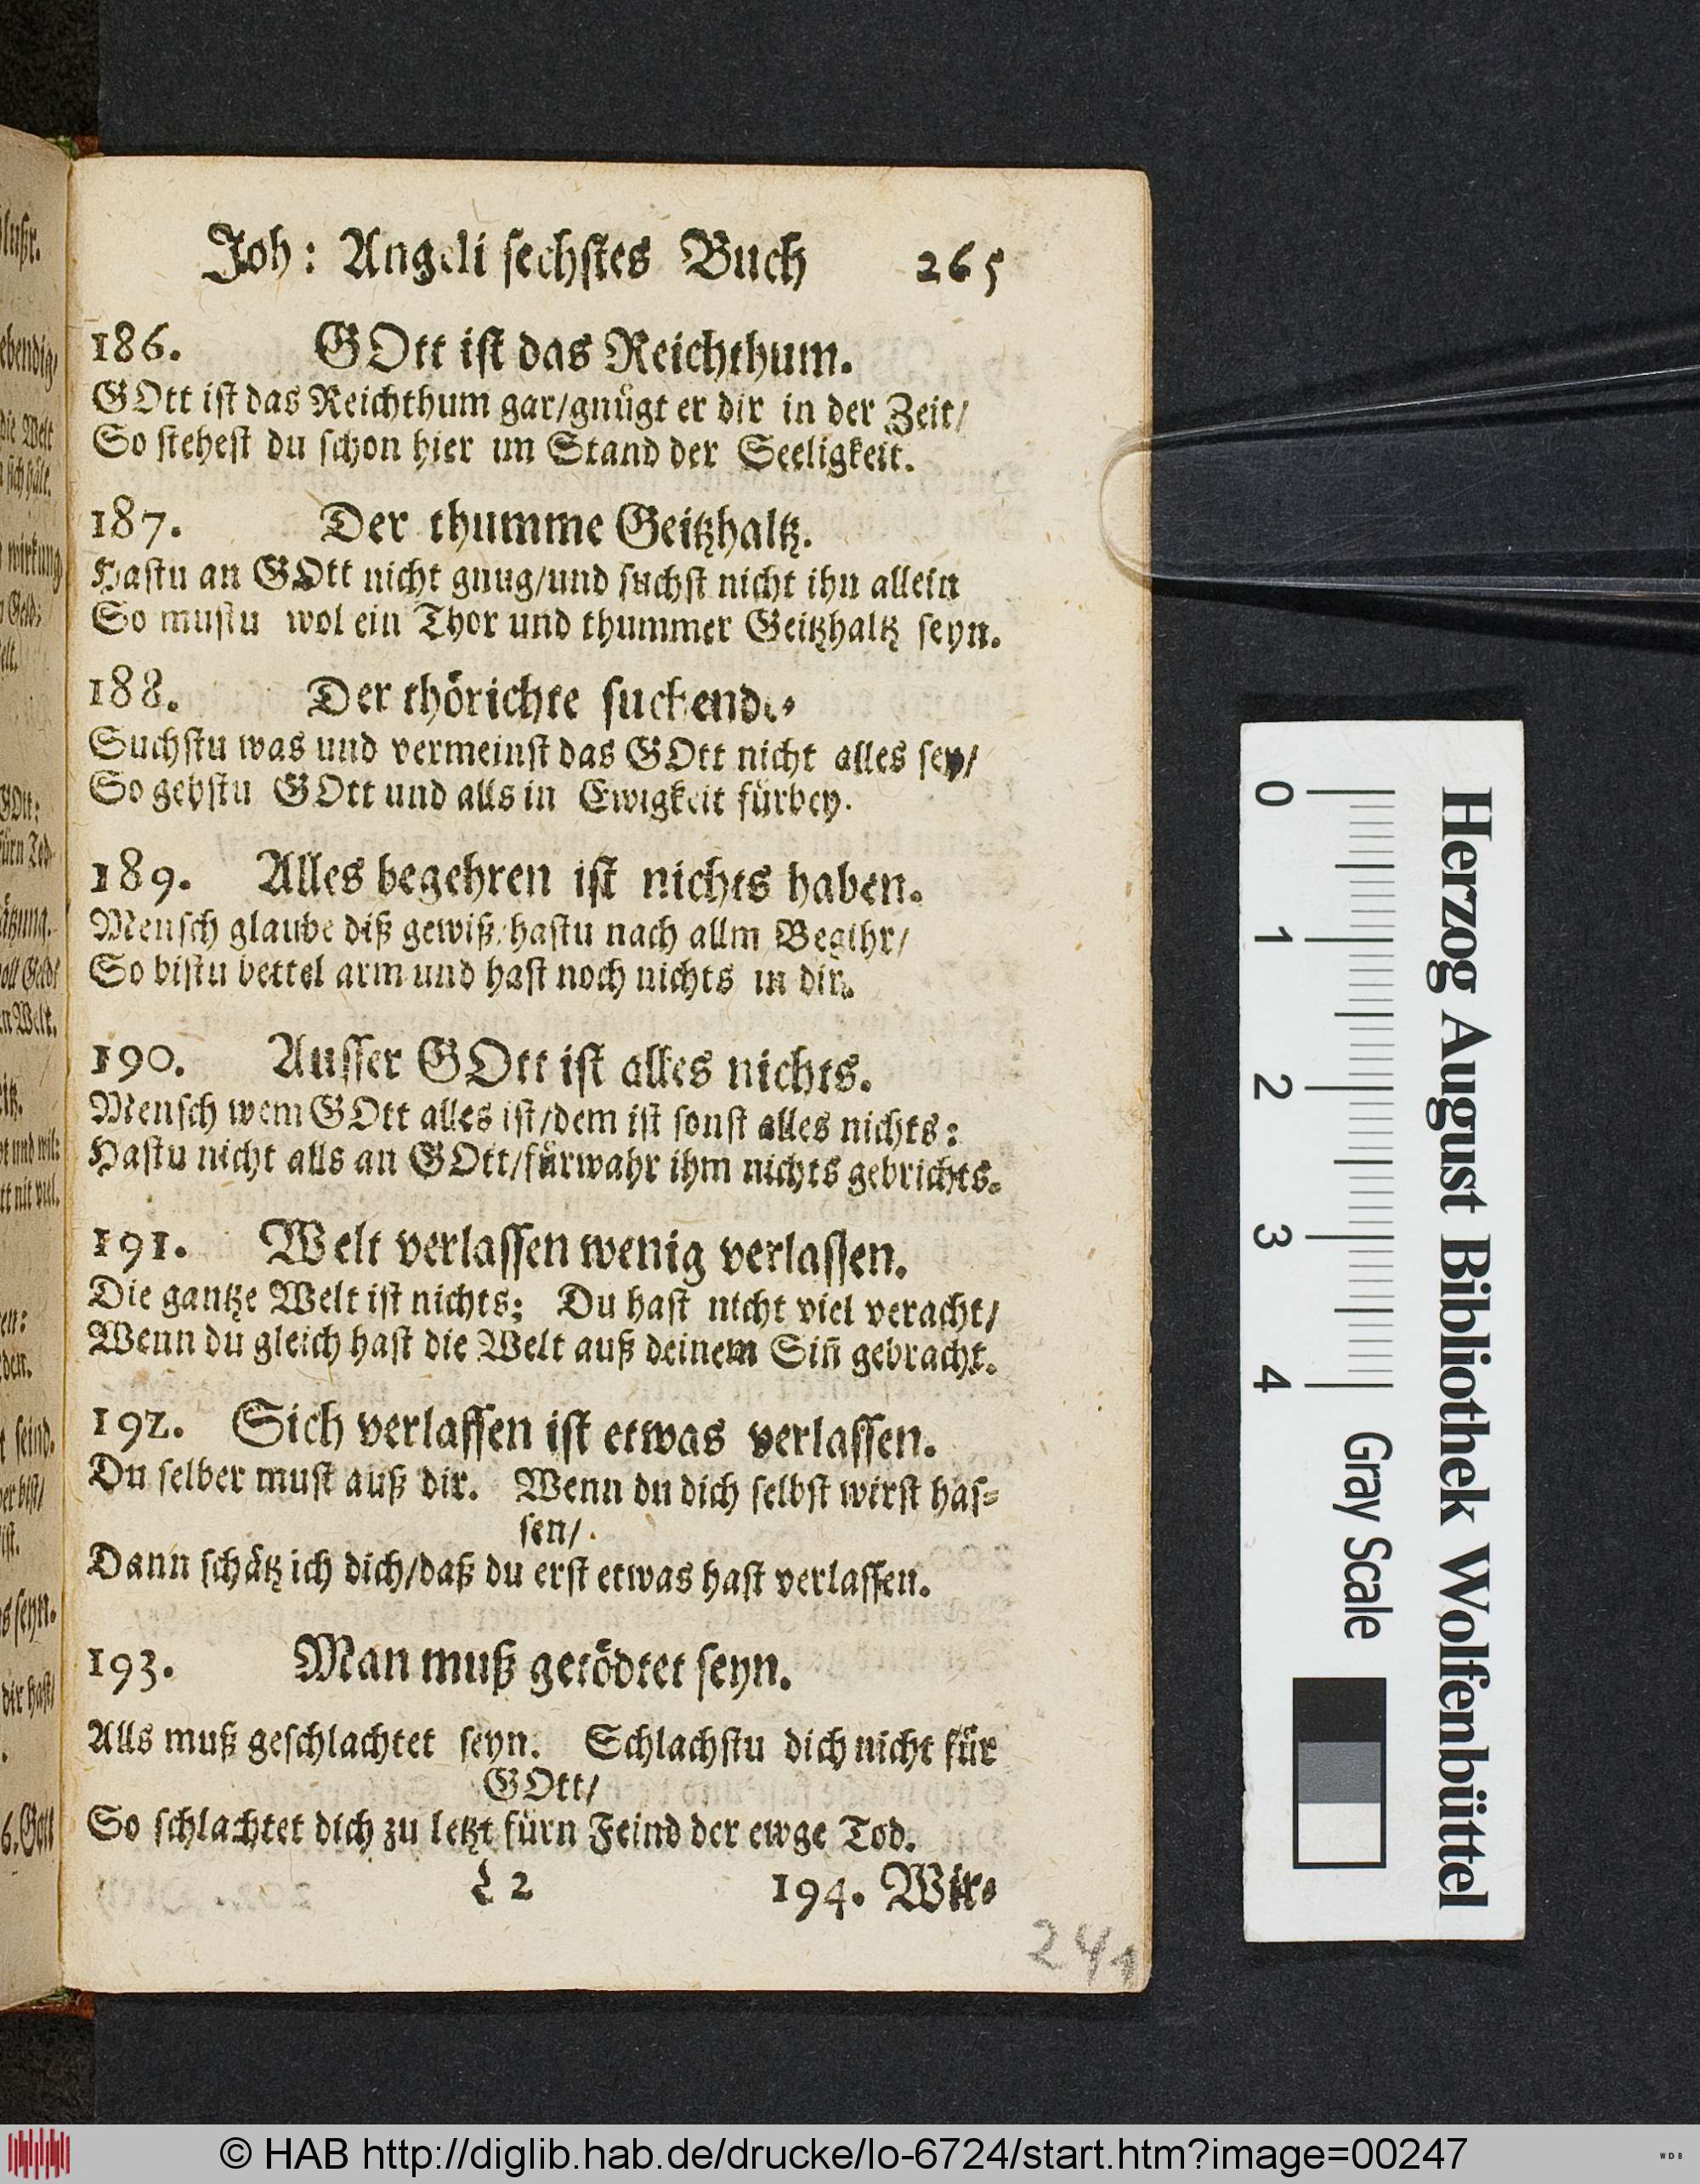 Joh: Angeli sechstes Buch 265
186. GOtt ist das Reichthum.
GOtt ist das Reichthum gar/gnůgt er dir in der Zeit/
So stehest du schon hier im Stand der Seeligkeit.
187. Der thumme Geitzhaltz.
Hastu an GOtt nicht gnug/und suchst nicht ihn allein
So mustu wol ein Thor und thummer Geitzhaltz seyn.
188. Der thörichte suchende.
Suchstu was und vermeinst das GOtt nicht alles sey/
So gehstu GOtt und alls in Ewigkeit fürbey.
189. Alles begehren ist nichts haben.
Mensch glaube diß gewiß/hastu nach allm Begihr/
So bistu bettel arm und hast noch nichts in dir.
190. Ausser GOtt ist alles nichts.
Mensch wem GOtt alles ist/dem ist sonst alles nichts:
Hastu nicht alls an GOtt/fürwahr ihm nichts gebrichts.
191. Welt verlassen wenig verlassen.
Die gantze Welt ist nichts; Du hast nicht viel veracht/
Wenn du gleich hast die Welt auß deinem Sin̄ gebracht.
192. Sich verlassen ist etwas verlassen.
Du selber must auß dir. Wenn du dich selbst wirst has-
sen/
Dann schätz ich dich/daß du erst etwas hast verlassen.
193. Man muß getödtet seyn.
Alls muß geschlachtet seyn. Schlachstu dich nicht für
GOtt/
So schlachtet dich zu letzt fürn Feind der ewge Tod.
L 2 194. Wir-
241
Herzog August Bibliothek Wolfenbüttel
0 1 2 3 4 Gray Scale
© HAB http://diglib.hab.de/drucke/lo-6724/start.htm?image=00247